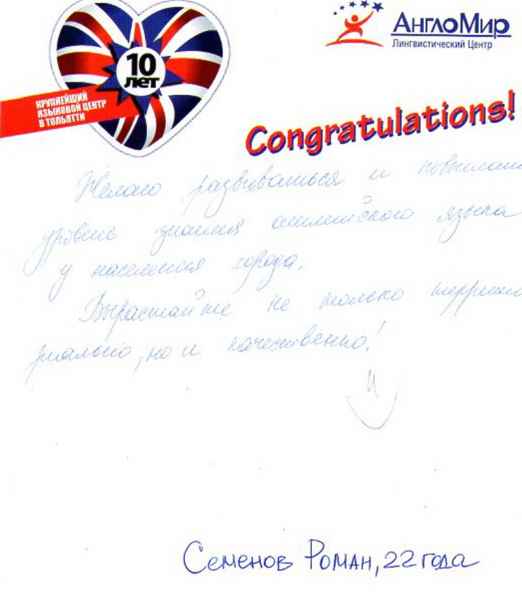 10
лет
КРУПНЕЙШИЙ
ЯЗЫКОВОЙ ЦЕНТР
В ТОЛЬЯТТИ
АнглоМир
Лингвистический Центр
Congratulations!
Желаю развиваться и повышать
уровень знания английского языка
у населения города.
Вырастайте не только террито
риально, но и качественно!
Семенов Роман, 22 года